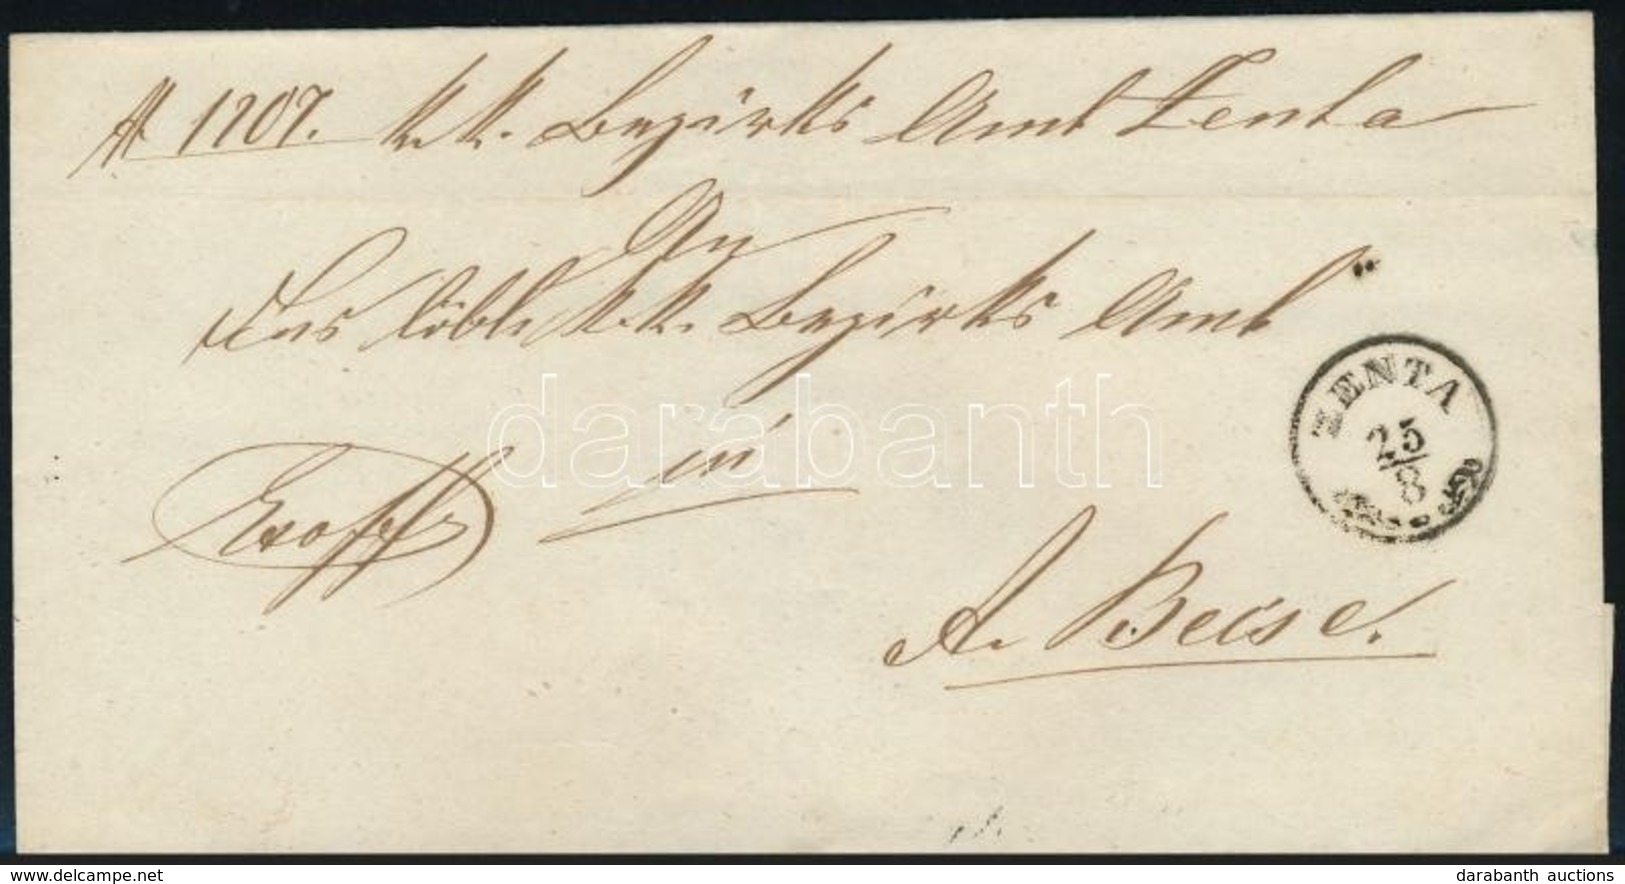 № 1707. k. k. Bezirks Amt Zenta
An
Das löbl. k. k. Bezirks Amt
ZENTA
25
8
in
Exoffo
A. Becse.
darabanth
www.delcampe.net
darabanth auctions